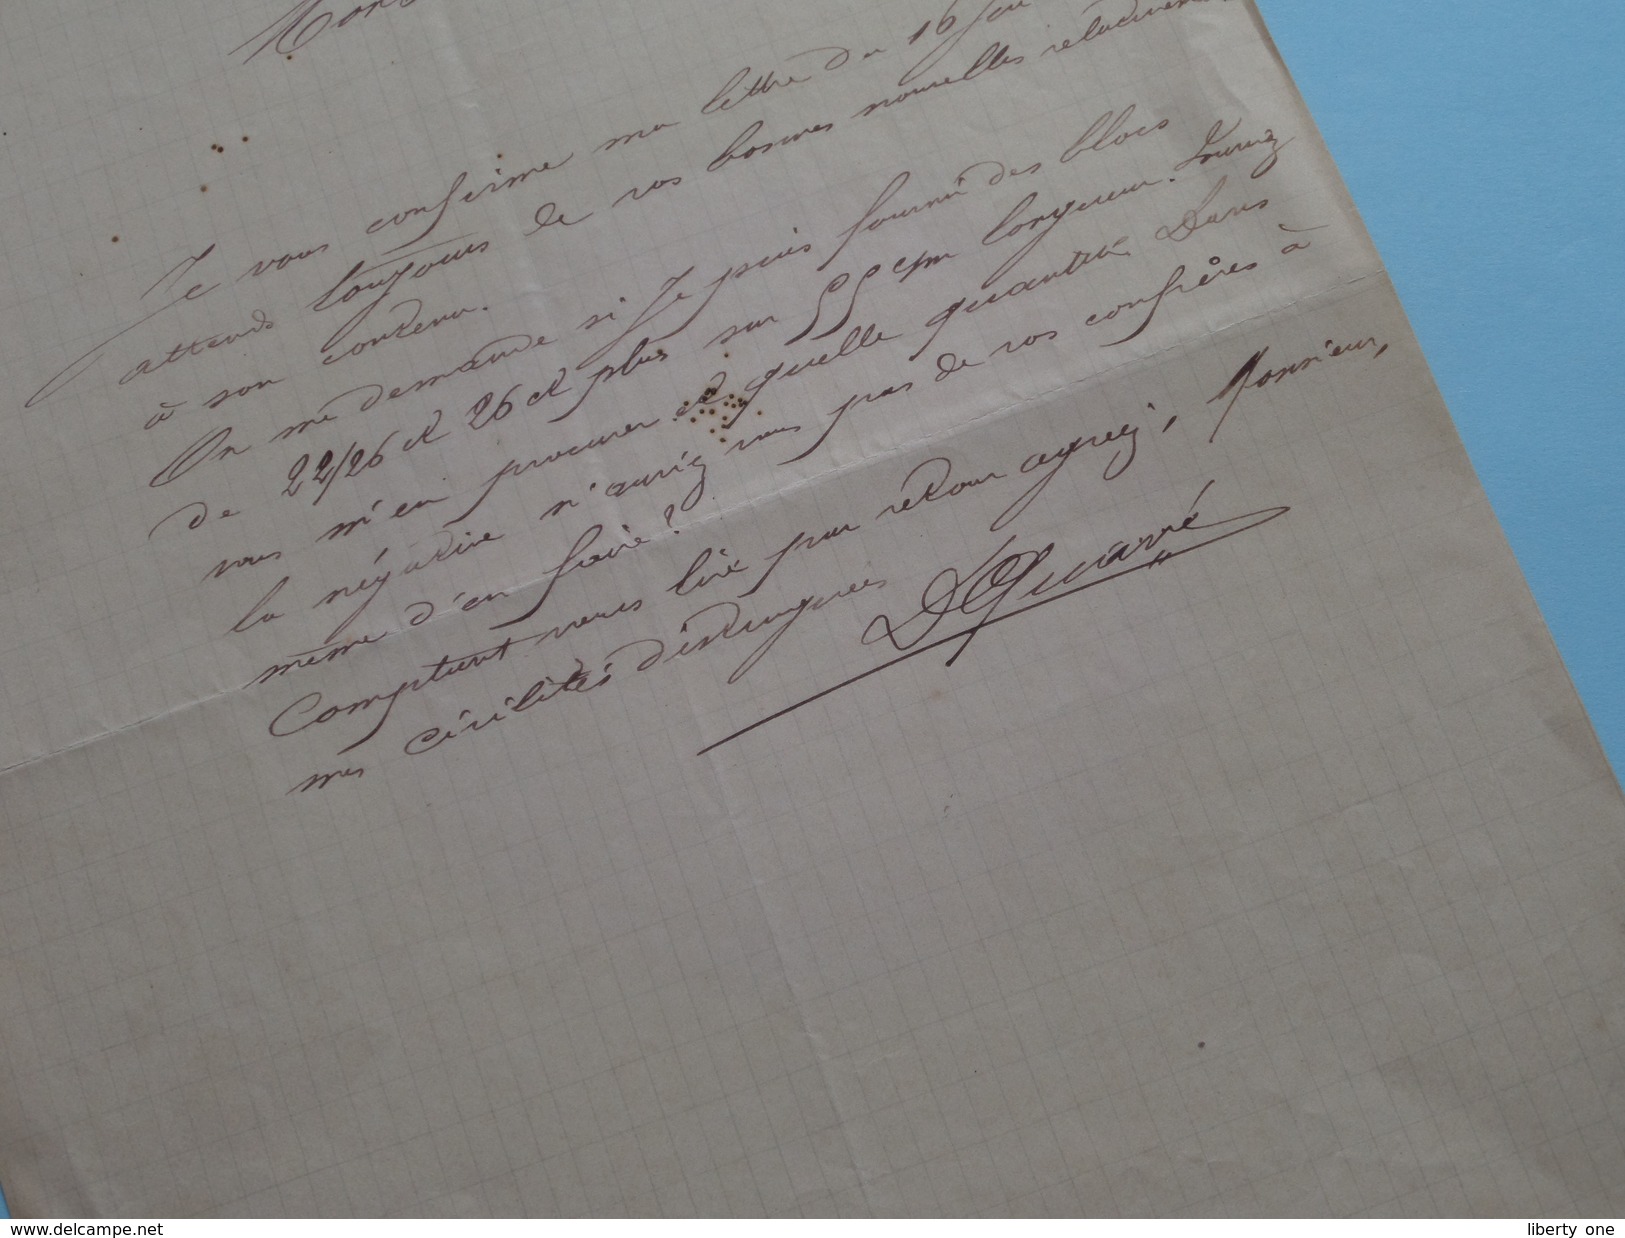 Je vous confirme ma lettre du 16
attends toujours de vos bonnes nouvelles
à son contenu.
On me demande si Je puis fournir des blocs
de 22/26 et 26 et plus sur 55 cm longueur. Pouriez
vous m'en procurer et quelle quantité. Dans
la négative n'auriez vous pas de vos confrères à
même d'en faire?
Comptant vous lire par retour agreéz, Monsieur,
mes civilités distinguées
D Quarré
www.delcampe.net
liberty_one